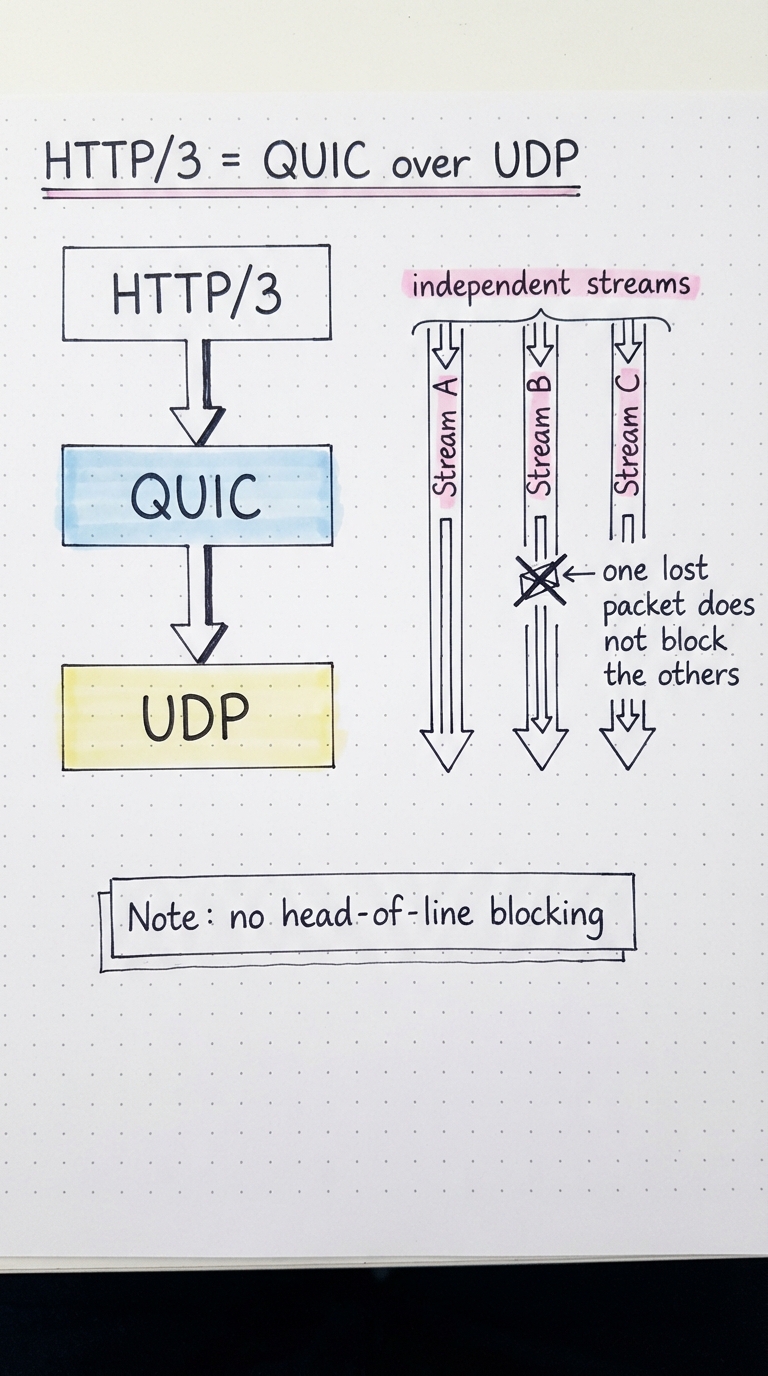 HTTP/3 = QUIC over UDP
HTTP/3
QUIC
UDP
independent streams
Stream A
Stream B
Stream C
one lost
packet does
not block
the others
Note: no head-of-line blocking